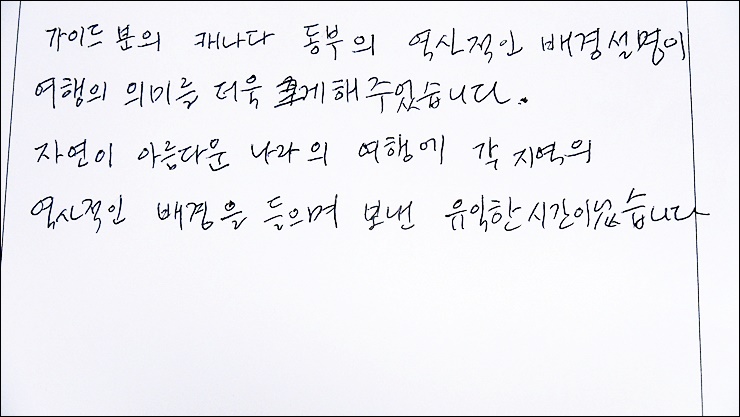 가이드 분의 캐나다 동부의 역사적인 배경설명이
여행의 의미를 더욱 해주었습니다.
자연이 아름다운 나라의 여행에 각 지역의
역사적인 배경을 들으며 보낸 유익한 시간이었습니다